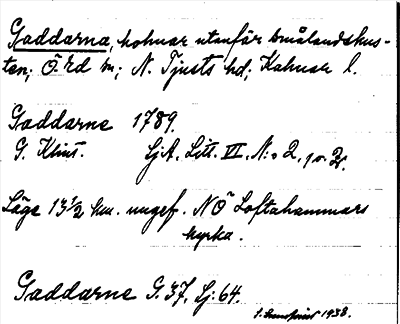 Gaddarna, holmar utanför Smålandskus-
ten; Ö. Ed sn; N. Tjusts hd; Kalmar l.
Gaddarne 1789.
G. Klint. SjA, Litt. VI, N:o 2,
Läge 13½ km. ungef. NÖ Loftahammars
kyrka.
Gaddarne G. 37, Sj: 64.
1938.